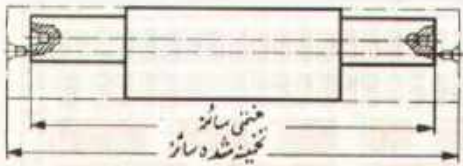 حتمی سائز
تخمینہ شدہ سائز